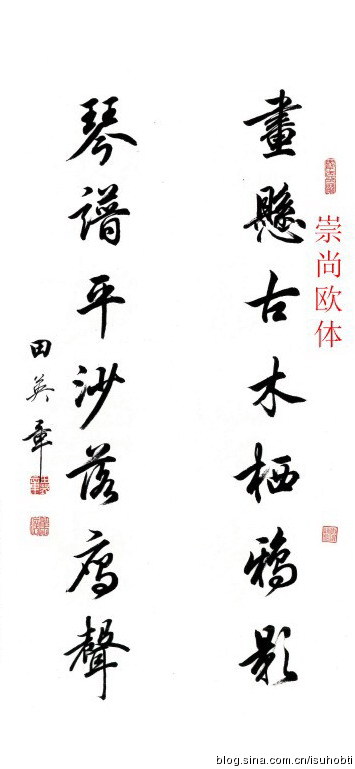 畫懸古木栖鴉影
琴譜平沙落雁聲
田英章
崇尚欧体
blog.sina.com.cn/isuhobti